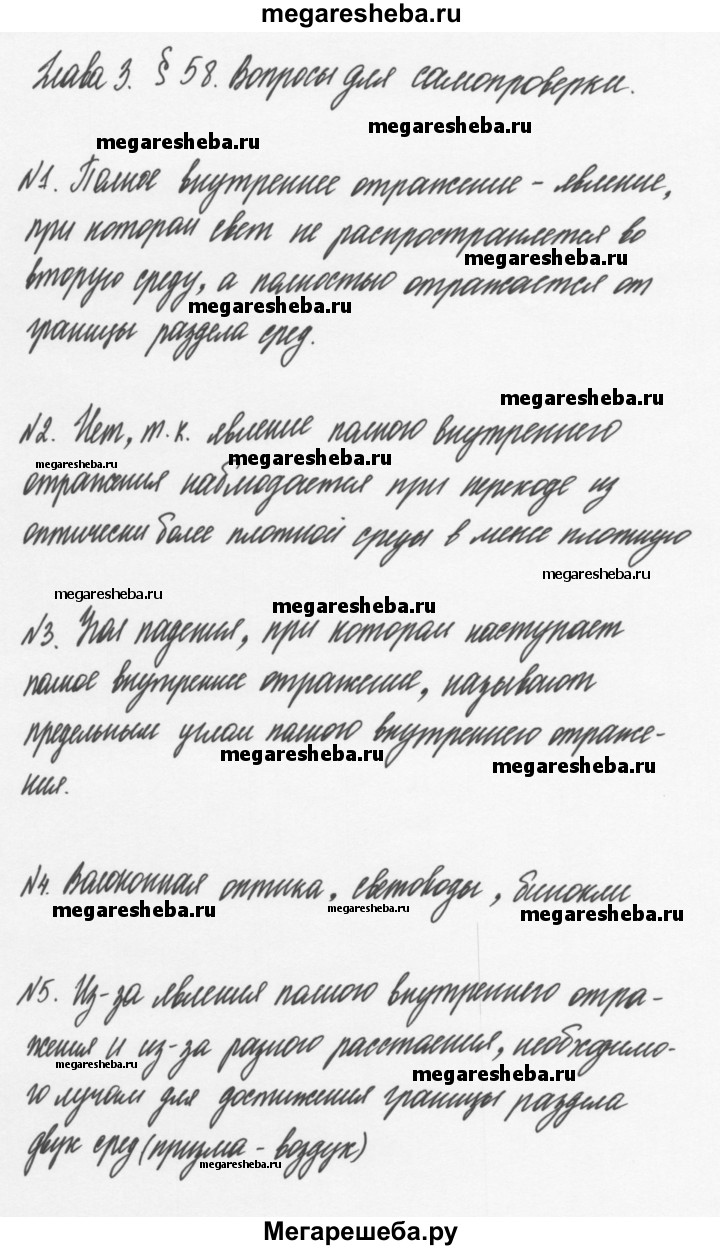 megaresheba.ru
Глава 3. § 58. Вопросы для самопроверки.
megaresheba.ru
megaresheba.ru
№1. Полное внутреннее отражение – явление,
при котором свет не распространяется во
megaresheba.ru
вторую среду, а полностью отражается от
megaresheba.ru
границы раздела сред.
megaresheba.ru
№2. Нет, т.к. явление полного внутреннего
megaresheba.ru
megaresheba.ru
отражения наблюдается при переходе из
оптически более плотной среды в менее плотную
megaresheba.ru
megaresheba.ru
megaresheba.ru
№3. Угол падения, при котором наступает
полное внутреннее отражение, называют
предельным углом полного внутреннего отраже-
megaresheba.ru
megaresheba.ru
ния.
№4. Волоконная оптика, световоды, бинокли
megaresheba.ru
megaresheba.ru
megaresheba.ru
№5. Из-за явления полного внутреннего отра-
жения и из-за разного расстояния, необходимо-
megaresheba.ru
megaresheba.ru
го лучам для достижения границы раздела
двух сред (призма – воздух)
megaresheba.ru
Мегарешеба.ру